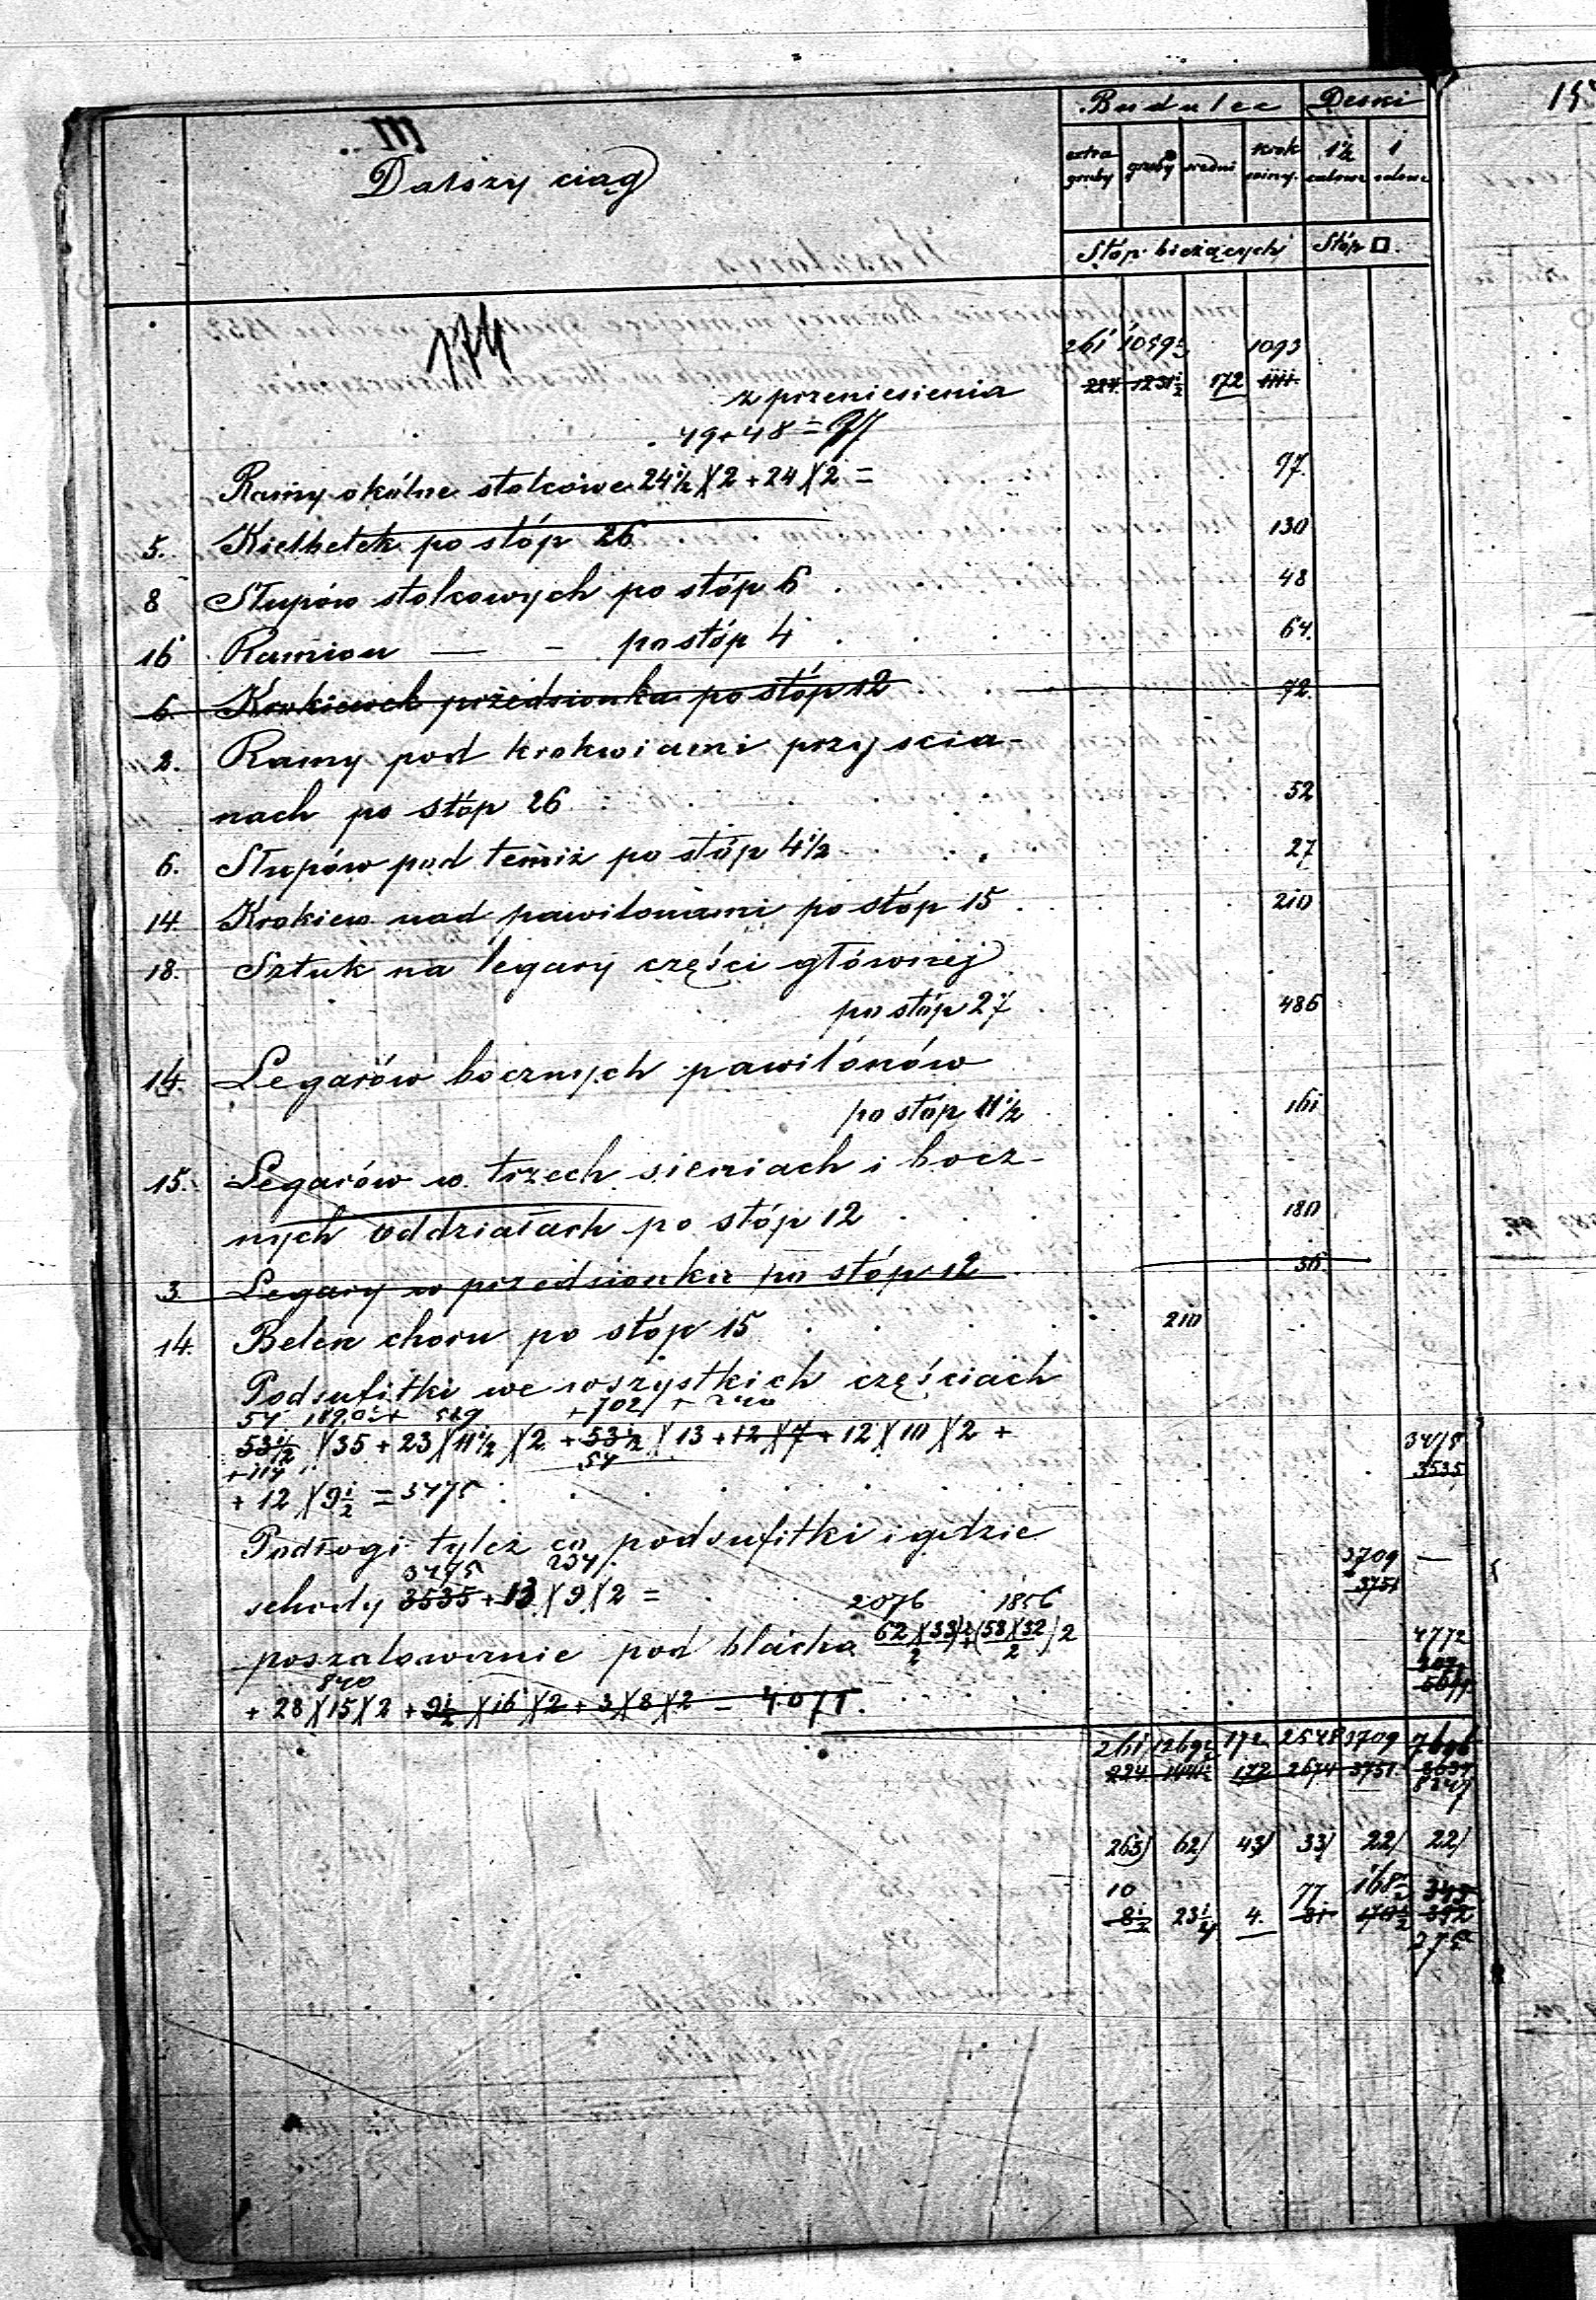 Budulec Deski
extra gruby gruby średni krokwiowy. 1½ calowe 1 calowe
Stóp bieżących Stóp □.
III
Dalszy ciąg
174
261 1059½ 1093
z przeniesienia 224 1231½ 172 1111
49+48=97
Ramy okólne stolcowe 24½)(2+24)(2= 97.
5. Kielbelek po stóp 26 130
8 Słupów stolcowych po stóp 6 48
16 Ramion — – po stóp 4 64.
6. Krokiewek przedsionka po stóp 12 72.
2. Ramy pod krokwiami przy ścia-
nach po stóp 26 52
6. Słupów pod temiż po stóp 4½ 27
14. Krokiew nad pawilonami po stóp 15 210
18. Sztuk na legary części głównej
po stóp 27 486
14. Legarów bocznych pawilonów
po stóp 11½ 161
15. Legarów w trzech sieniach i bocz-
nych oddziałach po stóp 12 180
3 Legary w przedsionku po stóp 12 36.
14. Belek choru po stóp 15 210
Podsufitki we wszystkich częściach
54 1890+ 529 +702/ + 240
53½)(35+23)(11½)(2+53½)(13+12)(7+12)(10)(2+ 3475
+114 54 3535
+12)(9½=3475
Podłogi tyleż co podsufitki i gdzie
3475 234/. 3709 —
schody 3535+13)(9)(2= 3751
2076 1856
poszalowanie pod blacha 62)(33½/2+(58)(32/2)2 4772
840
+28)(15)(2+9½)(16)(2+3)(8)(2=4071.
261 1269½ 172 2548 3709
224 1441½ 172 2674 3751
8247
263/ 62/ 43/ 33/ 22/ 22/
10 77. 168½ 345
8½ 23¼ 4. 81 170½ 392
375